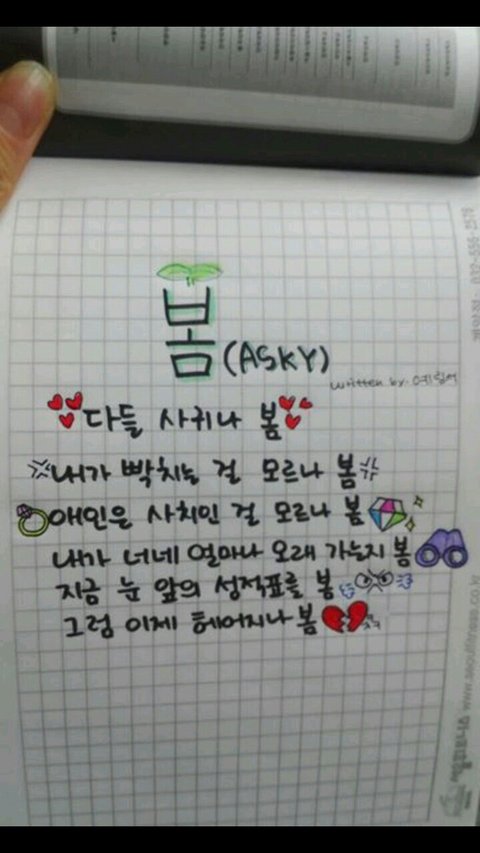 봄(ASKY)
written by. 예림써
다들 사귀나 봄
내가 빡치는 걸 모르나 봄
애인은 사치인 걸 모르나 봄
내가 너네 얼마나 오래 가는지 봄
지금 눈 앞의 성적표를 봄
그럼 이제 헤어지나 봄